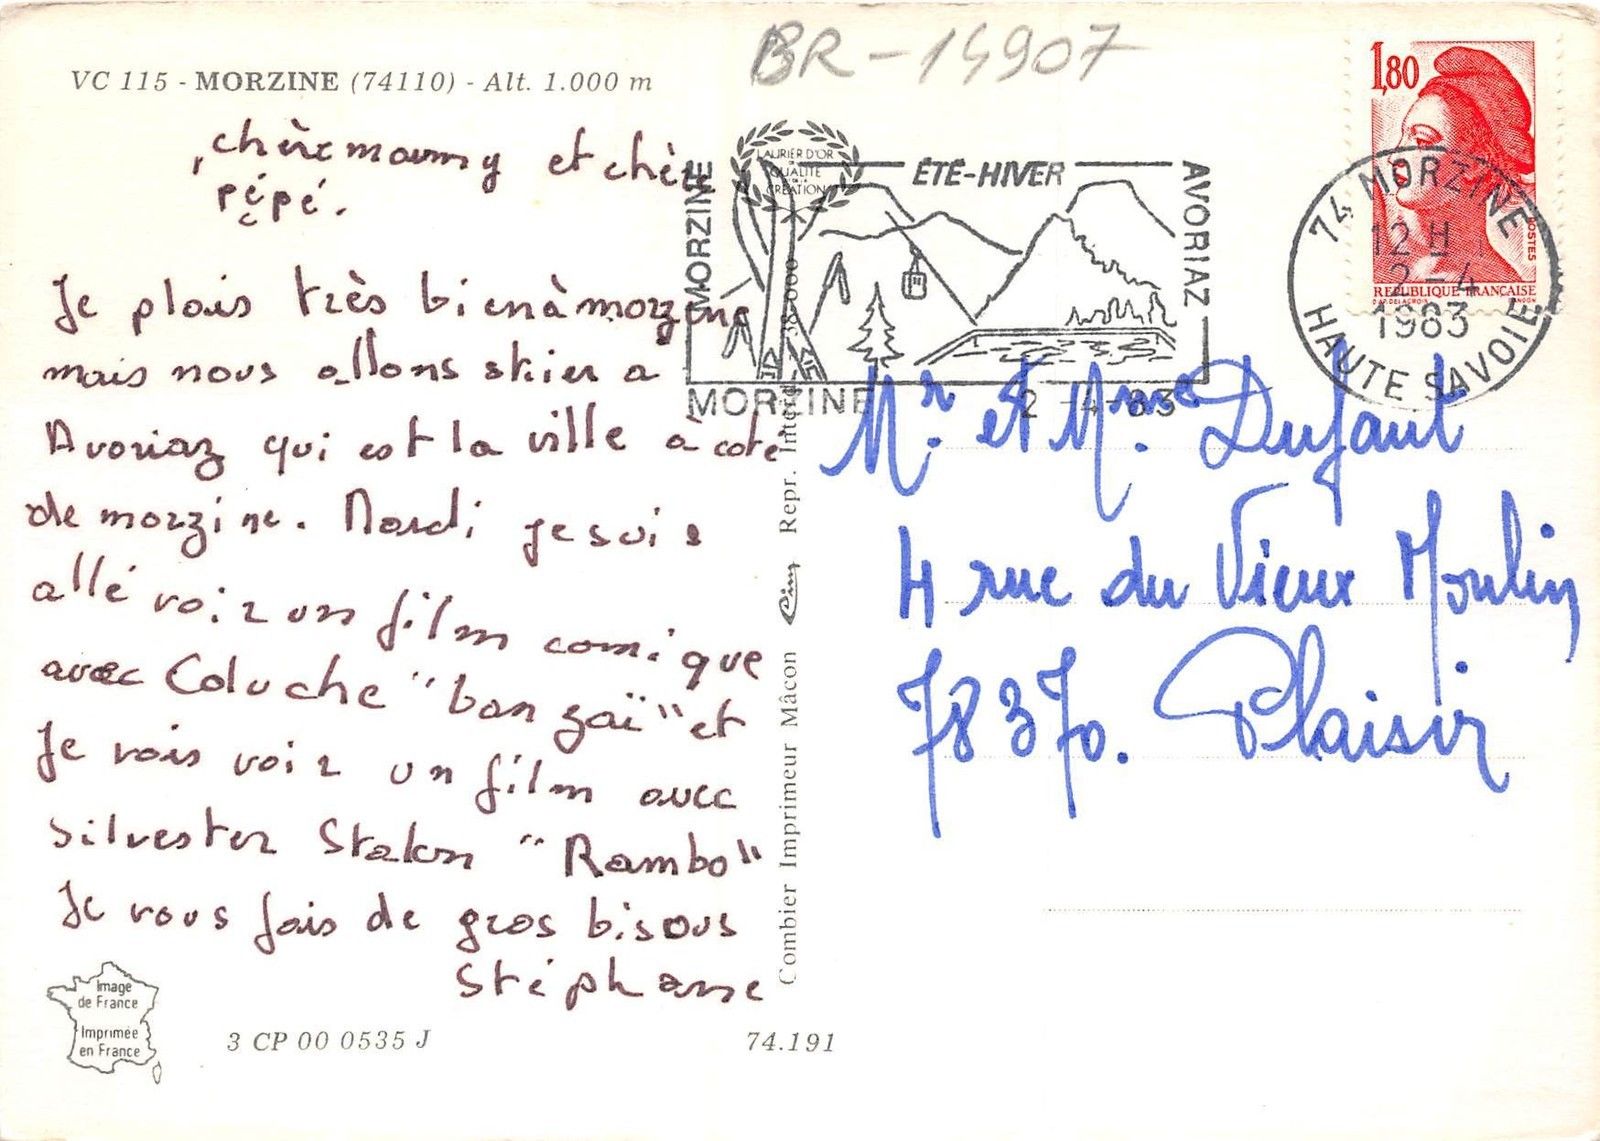 BR-14907
VC 115 - MORZINE (74110) - Alt. 1.000 m
chère mamy et chère
pépé.
Je plais très bien à morzine
mais nous allons skier a
Avoriaz qui est la ville à coté
de morzine. Mardi je suis
allé voir un film comique
avec Coluche "banzaï" et
Je vais voir un film avec
Silvester Stalon "Rambo"
Je vous fais de gros bisous
Stéphane
Image
de France
Imprimée
en France
3 CP 00 0535 J
74.191
Combier Imprimeur Mâcon Cim Repr. Interd.
LAURIER D'OR
QUALITE
CREATION
MORZINE
ÉTÉ-HIVER
AVORIAZ
MORZINE
2 -4-83
1,80
POSTES
REPUBLIQUE FRANCAISE
74 MORZINE
12 H
2-4
1983
HAUTE SAVOIE
Mr. et Mme. Dufaut
4 rue du Vieux Moulin
78370. Plaisir